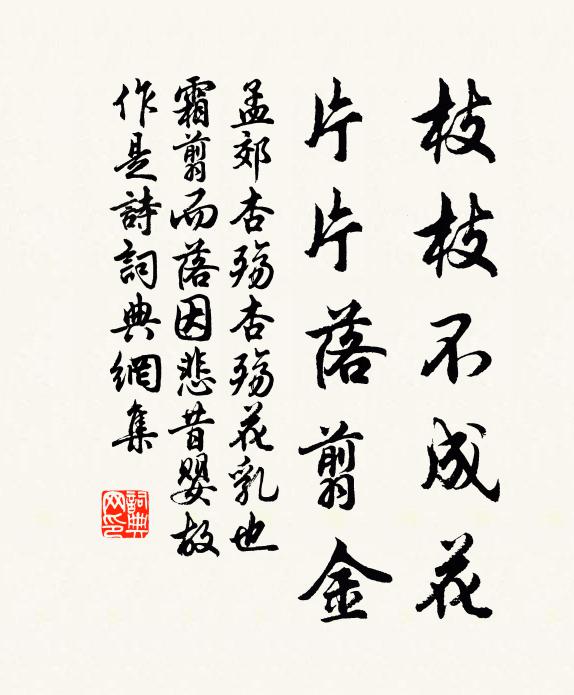 枝枝不成花
片片落翦金
孟郊杏殤杏殤花乳也
霜翦而落因悲昔嬰故
作是詩詞典網集
詞典
网印